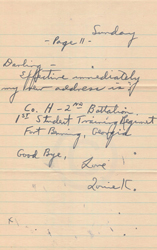 Sunday
- Page 11 -
Darling -
Effective immediately
my new address is:
Co. H - 2nd Battalion
1st Student Training Regiment
Fort Benning, Georgia
Good Bye,
Love